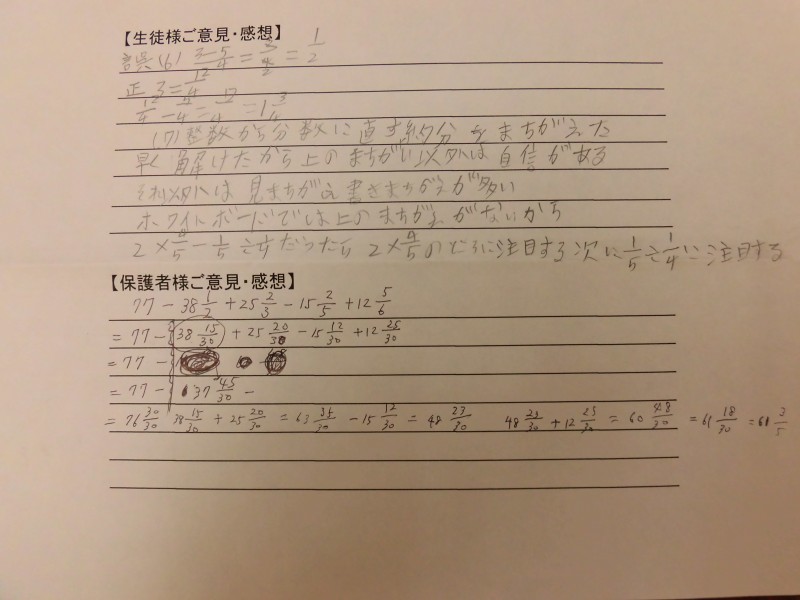 【生徒様ご意見・感想】
誤(6) 3-5/4 = 3/4/2 = 1/2
正 3 = 12/4
12/4 - 5/4 = 7/4 = 1 3/4
(7)整数から分数に直す約分をまちがえた
早く解けたから上のまちがい以外は自信がある
それ以外は見まちがえ書きまちがえが多い
ホワイトボードでは上のまちがえがないから
2×4/5-1/5÷1/4だったら2×4/5のところに注目する次に1/5÷1/4に注目する
【保護者様ご意見・感想】
77 - 38 1/2 + 25 2/3 - 15 2/5 + 12 5/6
= 77 - 38 15/30 + 25 20/30 - 15 12/30 + 12 25/30
= 77 -
= 77 - 37 45/30 -
= 76 30/30 38 15/30 + 25 20/30 = 63 35/30 - 15 12/30 = 48 23/30 48 23/30 + 12 25/30 = 60 48/30 = 61 18/30 = 61 3/5